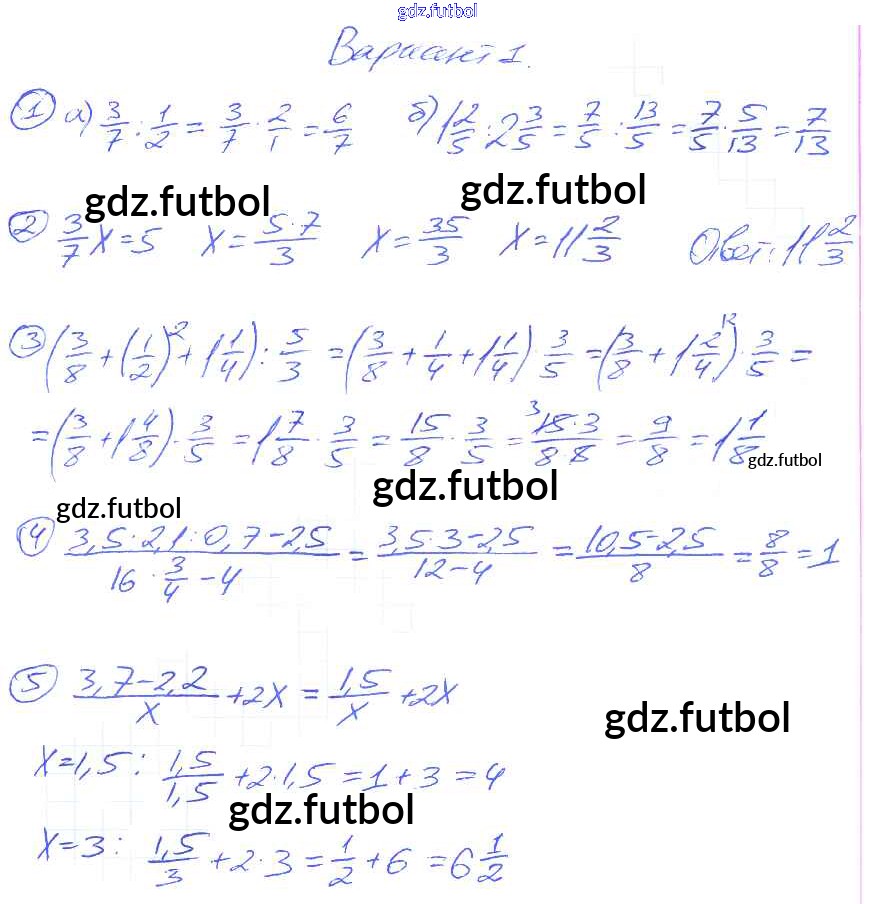 gdz.futbol
Вариант 1.
① а) 3/7 : 1/2 = 3/7 · 2/1 = 6/7 б) 1 2/5 : 2 3/5 = 7/5 : 13/5 = 7/5 · 5/13 = 7/13
gdz.futbol gdz.futbol
② 3/7 x = 5 x = 5·7/3 x = 35/3 x = 11 2/3 Ответ: 11 2/3
③ (3/8 + (1/2)² + 1 1/4) : 5/3 = (3/8 + 1/4 + 1 1/4) · 3/5 = (3/8 + 1 2/4) · 3/5 =
= (3/8 + 1 4/8) · 3/5 = 1 7/8 · 3/5 = 15/8 · 3/5 = 3 15·3/8·8 = 9/8 = 1 1/8
gdz.futbol
gdz.futbol
gdz.futbol
④ (3,5·2,1:0,7-2,5)/(16 · 3/4 - 4) = (3,5·3-2,5)/(12-4) = (10,5-2,5)/8 = 8/8 = 1
⑤ (3,7-2,2)/x + 2x = 1,5/x + 2x
gdz.futbol
x=1,5: 1,5/1,5 + 2·1,5 = 1+3 = 4
gdz.futbol
x=3: 1,5/3 + 2·3 = 1/2 + 6 = 6 1/2